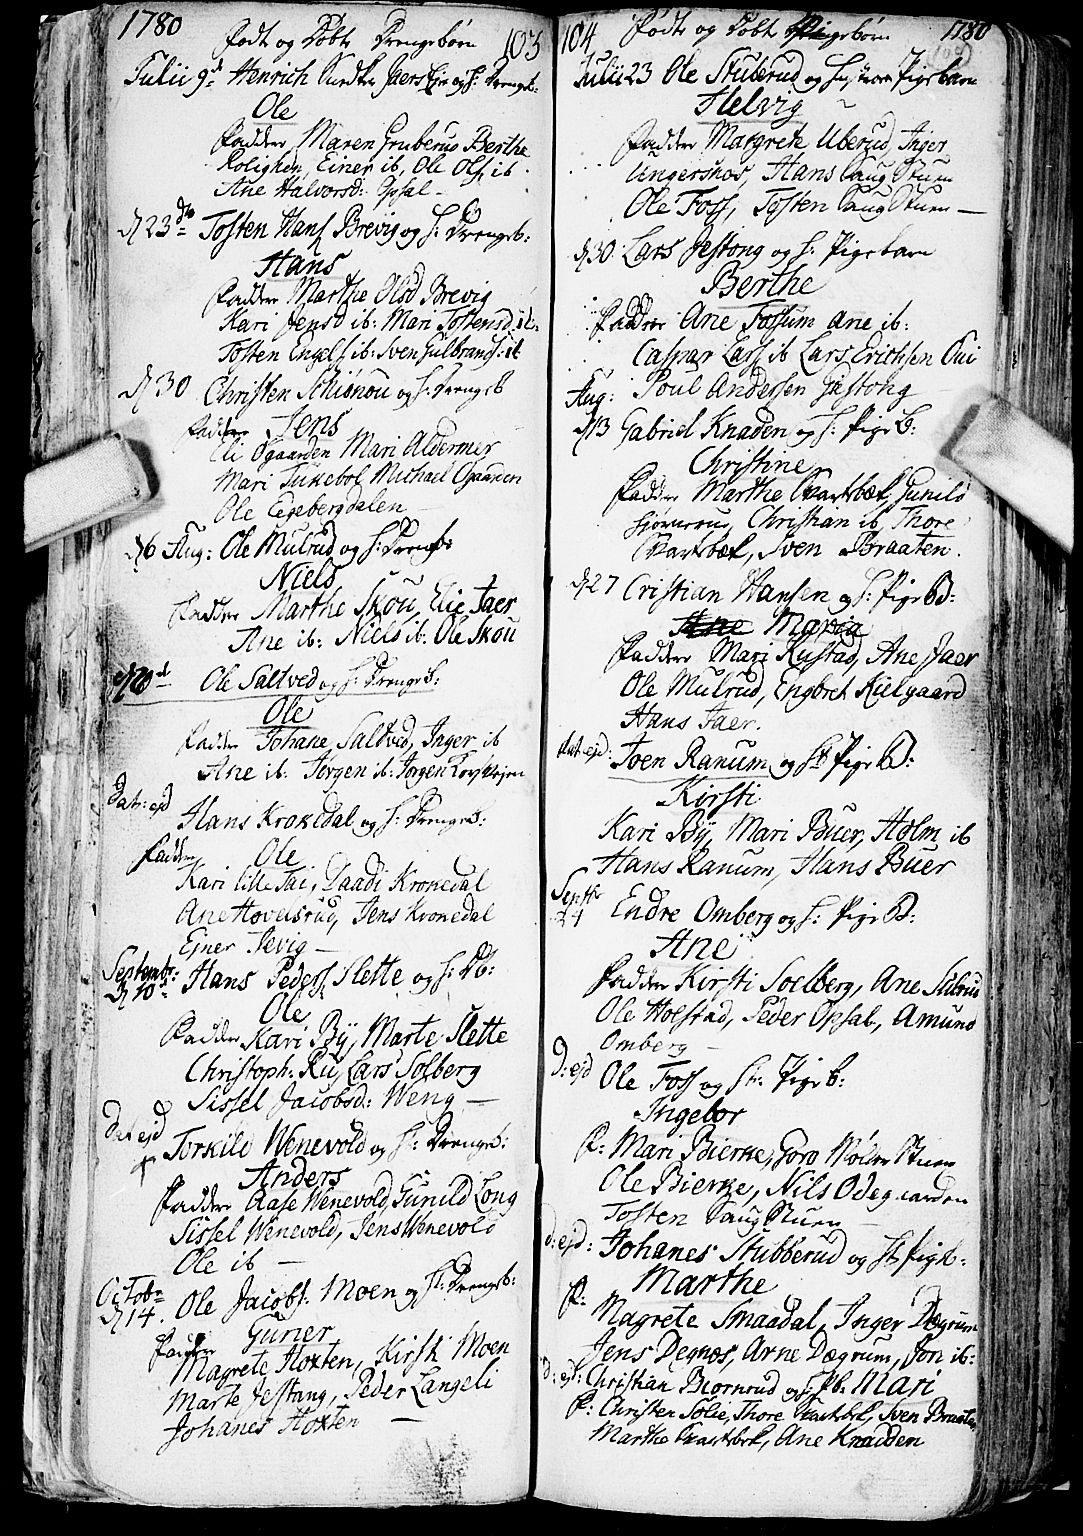 1780
Födt og Döbt Drengebörn 103
Julii 9d Henrich Jaers Eje og h: Drengeb:
Ole
Faddere Maren Gruberus Berthe
Rolighed, Einer ib, Ole Ols: ib
Ane Halvorsd: Opsal -
D 23de Tosten Hans: Brevig og h: Drengeb:
Hans
Faddere Marthe Olsd Brevig
Kari Jensd ib: Mari Tostensd ib:
Tosten Engels: ib: Sven Gulbrands: ib
D 30 Christen Schiönou og h: Drengeb
Jens
Faddere
Eli Ögaarden Mari Aldermer
Mari Tukebol Michael Ögaarden
Ole Egebergdalen
D 6 Aug: Ole Mulrud og h: Drengeb:
Niels
Faddere Marthe Skou, Elie Jaer
Ane ib: Niels ib: Ole Skou
D 20d Ole Saltved og h: Drengeb:
Ole
Faddere Johane Saltved, Inger ib
Ane ib: Jörgen ib: Jörgen
Dat: ejd Hans Krokedal og h: Drengeb:
Faddere Ole
Kari lille Jai, Paadi Krokedal
Ane Hovelsrud, Jens Krokedal
Ejner Sevig -
Septembr:
D 10d Hans Peders: Slette og h: Db:
Ole
Faddere Kari Bÿ, Marte Slette
Christoph: Ru, Lars Solberg
Sissel Jacobsd: Weng -
Dat ejd Torkild Wenevold og h: Drengeb:
Anders
Faddere Aase Wenevold, Gunild Long
Sissel Wenevold, Jens Wenevold
Ole ib -
Octobr
D 14. Ole Jacobs: Moen og h: Drengeb:
Guner
Faddere
Magrete Hoxten, Kirsti Moen
Marte Jestang, Peder Langeli
Johanes Hoxten -
104 Födt og Döbt Pigebörn 1780
Julii 23 Ole Stuberud og Pigebarn
Helvig
Faddere Margrete Uberud, Inger
Ungersnos, Hans Haug Stuen
Ole Foss, Tosten Haug Stuen -
D 30 Lars Jestong og h: Pigebarn
Berthe
Faddere Ane Fossum Ane ib:
Caspar Lars: ib Lars Erichsen Oui
Poul Andersen Gestong
Aug:
D 13 Gabriel Knaden og h: Pige B:
Christine
Faddere Marthe Quartbek, Gunild
Christian ib, Thore
Quartbek, Sven Braaten.
D 27 Cristian Hansen og h: Pige B:
Ane Maria
Faddere Mari Rustad, Ane Jaer
Ole Mulrud, Engbret Kielgaard
Hans Jaer.
Dat ejd: Joen Ranum og h: Pige B:
Kirsti
Kari Bÿ, Mari Buer, Holm ib
Hans Ranum, Hans Buer
Septbr
24 Endre Omberg og h: Pige B:
Ane
Faddere Kirsti Soelberg, Ane Stubrud
Ole Holstad, Peder Opsal, Amund
Omberg -
D: ejd Ole Foss og h: Pige b:
Ingebor
F: Mari Bierke, Goro Stuen
Ole Bierke, Nils Odegaarden
Tosten Haug Stuen -
D: ejd: Johanes Stubberud og h: Pigeb:
Marthe
F:
Magrete Smaadal, Inger Dægrum
Jens Degnes, Arne Dægrum, Jon ib:
D: ejd: Christian Biornrud og h: Pb: Mari
F: Christen Solie, Thore Quartbek, Sven Braaten
Marthe Quartbek, Ane Knaiden